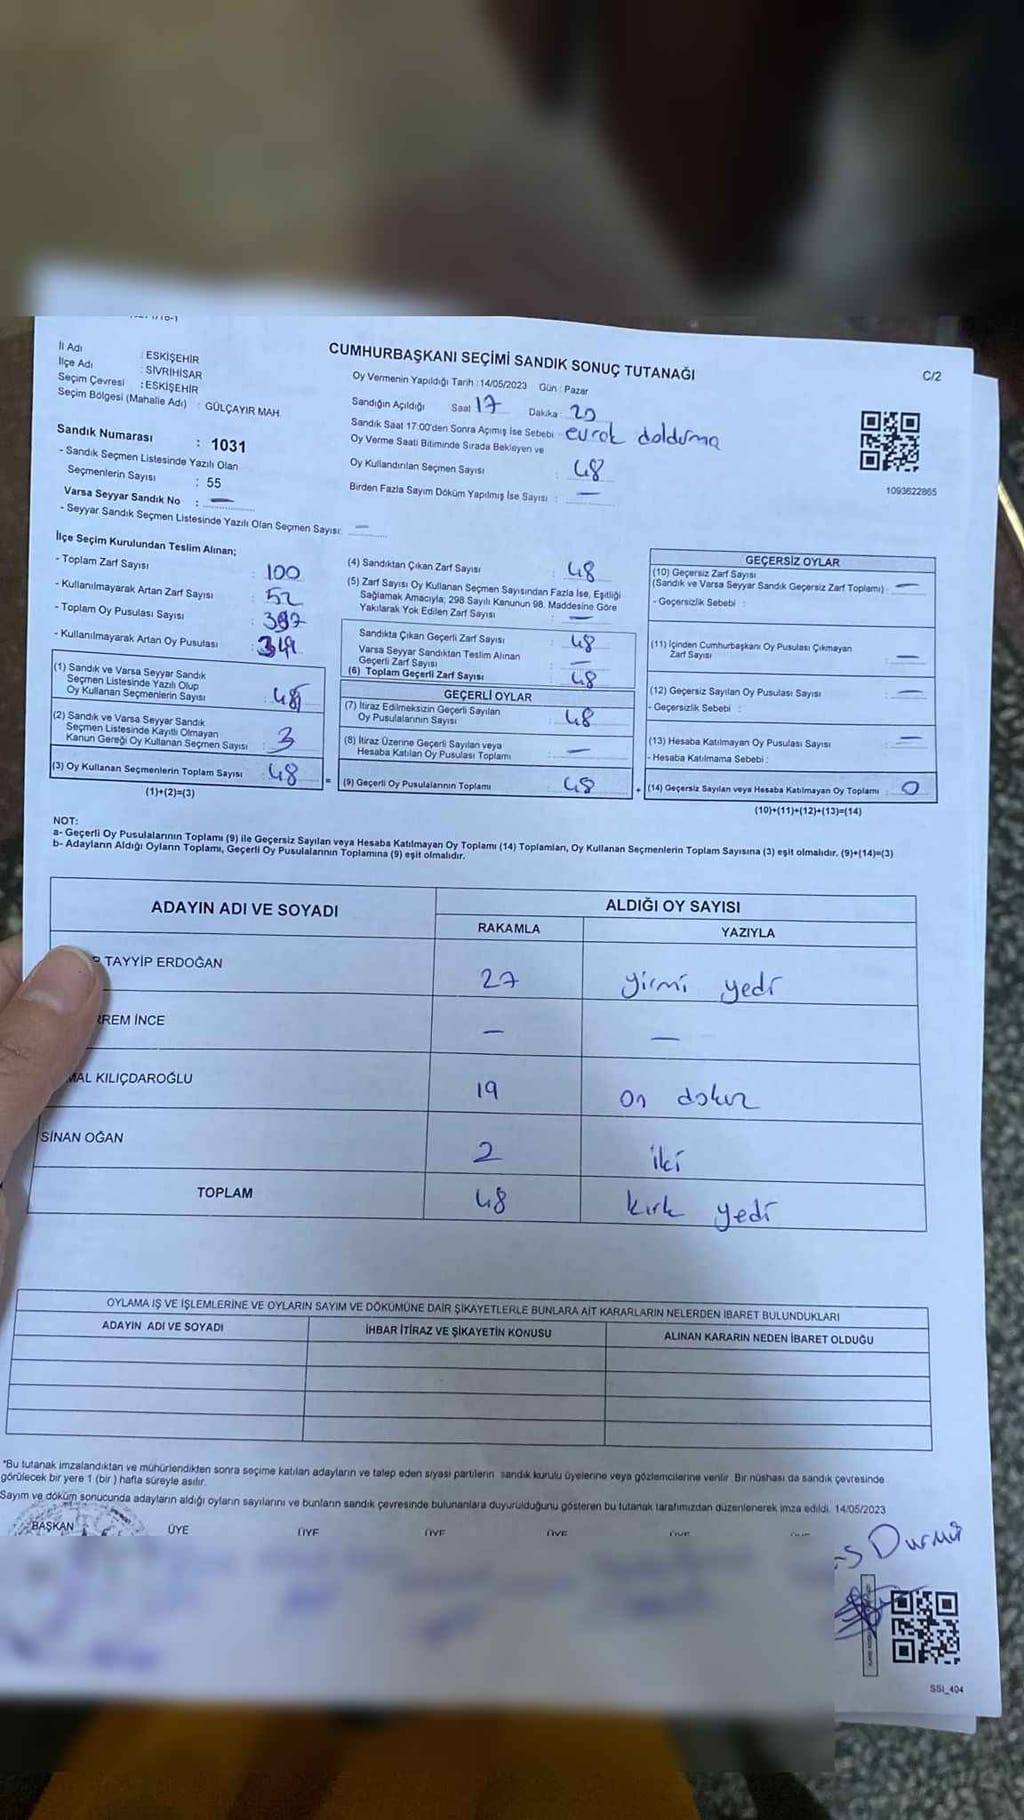 CUMHURBAŞKANI SEÇİMİ SANDIK SONUÇ TUTANAĞI
C/2
İl Adı : ESKİŞEHİR
İlçe Adı : SİVRİHİSAR
Seçim Çevresi : ESKİŞEHİR
Seçim Bölgesi (Mahalle Adı) : GÜLÇAYIR MAH.
Sandık Numarası : 1031
- Sandık Seçmen Listesinde Yazılı Olan
Seçmenlerin Sayısı : 55
Varsa Seyyar Sandık No : —
- Seyyar Sandık Seçmen Listesinde Yazılı Olan Seçmen Sayısı: —
Oy Vermenin Yapıldığı Tarih : 14/05/2023 Gün : Pazar
Sandığın Açıldığı Saat 17 Dakika : 20
Sandık Saat 17:00'den Sonra Açımış İse Sebebi : evrak doldurma
Oy Verme Saati Bitiminde Sırada Bekleyen ve
Oy Kullandırılan Seçmen Sayısı : 48
Birden Fazla Sayım Döküm Yapılmış İse Sayısı : —
1093622865
İlçe Seçim Kurulundan Teslim Alınan;
- Toplam Zarf Sayısı : 100
- Kullanılmayarak Artan Zarf Sayısı : 52
- Toplam Oy Pusulası Sayısı : 397
- Kullanılmayarak Artan Oy Pusulası : 349
(1) Sandık ve Varsa Seyyar Sandık
Seçmen Listesinde Yazılı Olup
Oy Kullanan Seçmenlerin Sayısı : 45
(2) Sandık ve Varsa Seyyar Sandık
Seçmen Listesinde Kayıtlı Olmayan
Kanun Gereği Oy Kullanan Seçmen Sayısı : 3
(3) Oy Kullanan Seçmenlerin Toplam Sayısı : 48
(1)+(2)=(3)
(4) Sandıktan Çıkan Zarf Sayısı : 48
(5) Zarf Sayısı Oy Kullanan Seçmen Sayısından Fazla İse, Eşitliği
Sağlamak Amacıyla; 298 Sayılı Kanunun 98. Maddesine Göre
Yakılarak Yok Edilen Zarf Sayısı : —
Sandıkta Çıkan Geçerli Zarf Sayısı : 48
Varsa Seyyar Sandıktan Teslim Alınan
Geçerli Zarf Sayısı : —
(6) Toplam Geçerli Zarf Sayısı : 48
GEÇERLİ OYLAR
(7) İtiraz Edilmeksizin Geçerli Sayılan
Oy Pusulalarının Sayısı : 48
(8) İtiraz Üzerine Geçerli Sayılan veya
Hesaba Katılan Oy Pusulası Toplamı : —
= (9) Geçerli Oy Pusulalarının Toplamı : 48
GEÇERSİZ OYLAR
(10) Geçersiz Zarf Sayısı
(Sandık ve Varsa Seyyar Sandık Geçersiz Zarf Toplamı) : —
- Geçersizlik Sebebi :
(11) İçinden Cumhurbaşkanı Oy Pusulası Çıkmayan
Zarf Sayısı : —
(12) Geçersiz Sayılan Oy Pusulası Sayısı : —
- Geçersizlik Sebebi :
(13) Hesaba Katılmayan Oy Pusulası Sayısı : —
- Hesaba Katılmama Sebebi :
+ (14) Geçersiz Sayılan veya Hesaba Katılmayan Oy Toplamı : 0
(10)+(11)+(12)+(13)=(14)
NOT:
a- Geçerli Oy Pusulalarının Toplamı (9) ile Geçersiz Sayılan veya Hesaba Katılmayan Oy Toplamı (14) Toplamları, Oy Kullanan Seçmenlerin Toplam Sayısına (3) eşit olmalıdır. (9)+(14)=(3)
b- Adayların Aldığı Oyların Toplamı, Geçerli Oy Pusulalarının Toplamına (9) eşit olmalıdır.
ADAYIN ADI VE SOYADI ALDIĞI OY SAYISI
RAKAMLA YAZIYLA
TAYYİP ERDOĞAN 27 yirmi yedi
RREM İNCE — —
MAL KILIÇDAROĞLU 19 on dokuz
SİNAN OĞAN 2 iki
TOPLAM 48 kırk yedi
OYLAMA İŞ VE İŞLEMLERİNE VE OYLARIN SAYIM VE DÖKÜMÜNE DAİR ŞİKAYETLERLE BUNLARA AİT KARARLARIN NELERDEN İBARET BULUNDUKLARI
ADAYIN ADI VE SOYADI İHBAR İTİRAZ VE ŞİKAYETİN KONUSU ALINAN KARARIN NEDEN İBARET OLDUĞU
*Bu tutanak imzalandıktan ve mühürlendikten sonra seçime katılan adayların ve talep eden siyasi partilerin sandık kurulu üyelerine veya gözlemcilerine verilir. Bir nüshası da sandık çevresinde
görülecek bir yere 1 (bir) hafta süreyle asılır.
Sayım ve döküm sonucunda adayların aldığı oyların sayılarını ve bunların sandık çevresinde bulunanlara duyurulduğunu gösteren bu tutanak tarafımızdan düzenlenerek imza edildi. 14/05/2023
BAŞKAN ÜYE ÜYE ÜYE ÜYE
Durmuş
SSI_404